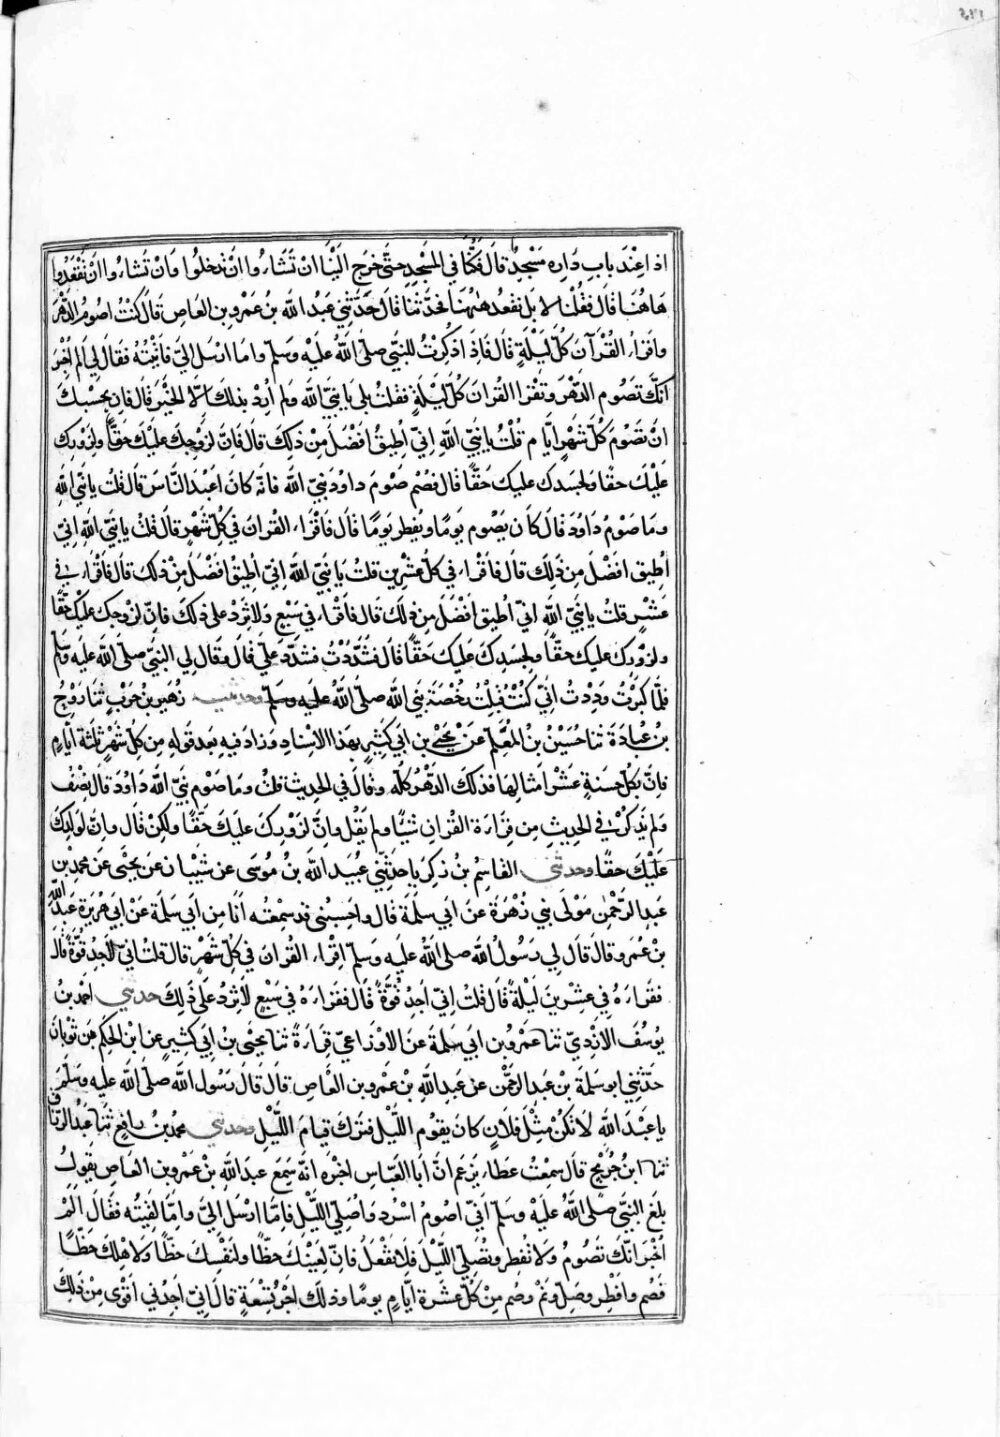 اذا عِنْدَ بابِ دَارِه مَسْجِدٌ قال فَكُنَّا في المَسْجِدِ حتّى خَرَج الَيْنَا ان تَشَاءُوا انْ تدخلُوا وَانْ تَشاءُوا انْ تَقْعُدُوا
هَاهُنَا قَالَ فقُلْنا لا بَل نَقعدُ هٰهُنَا فحَدِّثنا قال حَدَّثَنِي عبدُ الله بنُ عَمْرِو بن العَاصِ قَالَ كُنْتُ اصُومُ الدَّهْرَ
وَاقرَاءُ القُرْآنَ كُلَّ لَيْلَةٍ قَال فَاِذا ذكرْتُ للنّبي صلّى اللهُ عليْه وَسَلّم وامّا ارْسل اليَّ فأتَيْتُه فقال لي الم اُخْبَر
انّكَ تَصُوم الدّهْر وتقْرا القُرآن كُلّ لَيْلَةٍ فقلتُ بلى يانبيَّ الله ولم أرِدْ بذلك الّا الخَيْر قال فاِن بِحَسْبك
انْ تَصُومَ كُلّ شَهْرٍ ايّام قلْتُ يانبِيَّ الله اِنّي اُطِيقُ افْضَلَ مِنْ ذلكَ قال فَانّ لِزَوْجِكَ عَلَيْكَ حَقّاً ولِزَوْرِك
عَلَيْكَ حقّا ولجسَدك عليك حَقّاً قال فصُمْ صَوْمَ داودَ نبيِّ الله فانّه كَانَ اَعْبَدَ النَّاسَ قال قلتُ يانَبي الله
ومَا صَوْمُ دَاوُدَ قال كَان يَصُوم يَومًا ويُفطِر يَومًا قال فاقْرَاء القُرآنَ في كُلّ شَهْرٍ قال قلتُ يانبيّ الله اِنّي
اُطيقُ افضل من ذَلِكَ قال فاقْراء في كلّ عشْرين قلتُ يانبيَّ الله اِنّي اُطيقُ افضَلَ مِنْ ذلك قال فاقْرَاء في
عَشْرٍ قلتُ يانَبيَّ الله اِنّي اُطيق افْضَلَ من ذلكَ قال فاقْراء في سَبْعٍ ولا تزدْ على ذلكَ فانّ لزَوْجك عليك حَقّا
ولزَوْرك عَلَيك حَقّاً ولجسَدِكَ عَليكَ حَقّاً قال فشدّدْتُ فشدّدَ عَليّ قال وقال لي النبيّ صلى الله عَليه وسلّم
فلمّا كبرْتُ وَدِدْتُ انّي كنْتُ قبلْتُ رُخْصَةَ نبيّ الله صلى اللهُ عليه وسلّم وحدثنيه زُهَير بن حَرْبٍ ثنا رَوْحُ
بن عُبادةَ ثنا حُسَيْنُ بن المُعَلّم عَنْ يَحْيى بن ابي كثيرٍ بهذا الاسناد وزادَ فيه بعدَ قوله مِن كلّ شَهْرٍ ثلثة ايّام
فانّ بكُلّ حسنةٍ عشْرَ امثالها فذلك الدّهْرُ كلّه وقال في الحديث قلتُ وما صَوم نبيّ الله دَاوُدَ قال نِصْفُ
ولم يذكُرْ في الحديثِ مِن قِرَاءَةِ القُرآن شَيْئًا ولم يقُل وانّ لِزَوْرِكَ عَلَيْكَ حَقّا ولكِن قال وانّ لولدِكَ
عَلَيْكَ حقّا وحدثني القاسِم بْنُ زكَرِيّا حدثني عُبَيد الله بنُ مُوسَى عن شَيْبان عن يَحْيَى عن محمّد بن
عَبد الرّحْمنِ مَوْلَى بني زُهْرَةَ عن ابي سلمَة قال واحسِبُني قد سمِعْتُه انَا مِن ابي سَلَمة عَنْ ابي هُرَيرَة عبد الله
بنُ عُمَر وقال قال لي رَسُولُ الله صلى اللهُ عليه وسلّم اقْراء القُرآن في كلّ شَهْرٍ قال قلتُ انّي لاجدُ قُوَّةً قالَ
فقرَاءَهُ في عِشْرينَ لَيْلةً قال قلتُ اِنّي اَجِدُ قُوَّةً قال فقرَاءَهُ في سَبْعٍ لاتزدُ عَلَى ذلِكَ حدثني احمد بْنُ
يُوسُفَ الازْدِيّ ثنا عَمْرُو بن ابي سَلمةَ عَن الاوْزاعيّ قِرَاءةً ثنا يَحْيَى بن ابي كثيرٍ عن ابن الحكم بن ثَوْبانَ
حدّثني ابو سَلَمة بن عبد الرحمن عن عبدالله بن عمرو بن العاصِ قالَ قالَ رَسُول الله صلى الله عليه وسلّمَ
يا عَبْدَ الله لا تكنْ مِثْلَ فلانٍ كان يَقوم اللّيْلَ فترَكَ قيامَ اللّيْلِ وحدثني محمّدُ بنُ رافعٍ ثنا عَبْدُ الرزّاق
ثنا ابنُ جُرَيْجٍ قال سمعْتُ عطاءً يزعم انّ ابَا العَبّاسِ اخْبره انّه سَمِعَ عبد الله بْنَ عَمْرِو بن العَاصِ يقولُ
بلغَ النبيّ صلى اللهُ عليْه وسلّم اَنّي اصُومُ اسْردُ وَاُصَلّي اللّيْلَ فامّا ارسَل اليّ وامّا لقيتُه فقال الَمْ
اُخْبَر انّك تصُومُ ولا تُفطِر وتُصَلّي اللّيْلَ فلا تَفْعَلْ فانّ لعَيْنكَ حظًّا ولنَفْسِكَ حَظًّا ولاهْلِكَ حَظّا
فَصُم وافْطِر وصَلّ ونَمْ وصُم مِنْ كلّ عشَرة ايّام يومًا ولك اجْرُ تِسْعَةٍ قال اِنّي اجِدُني اقوى من ذلكَ